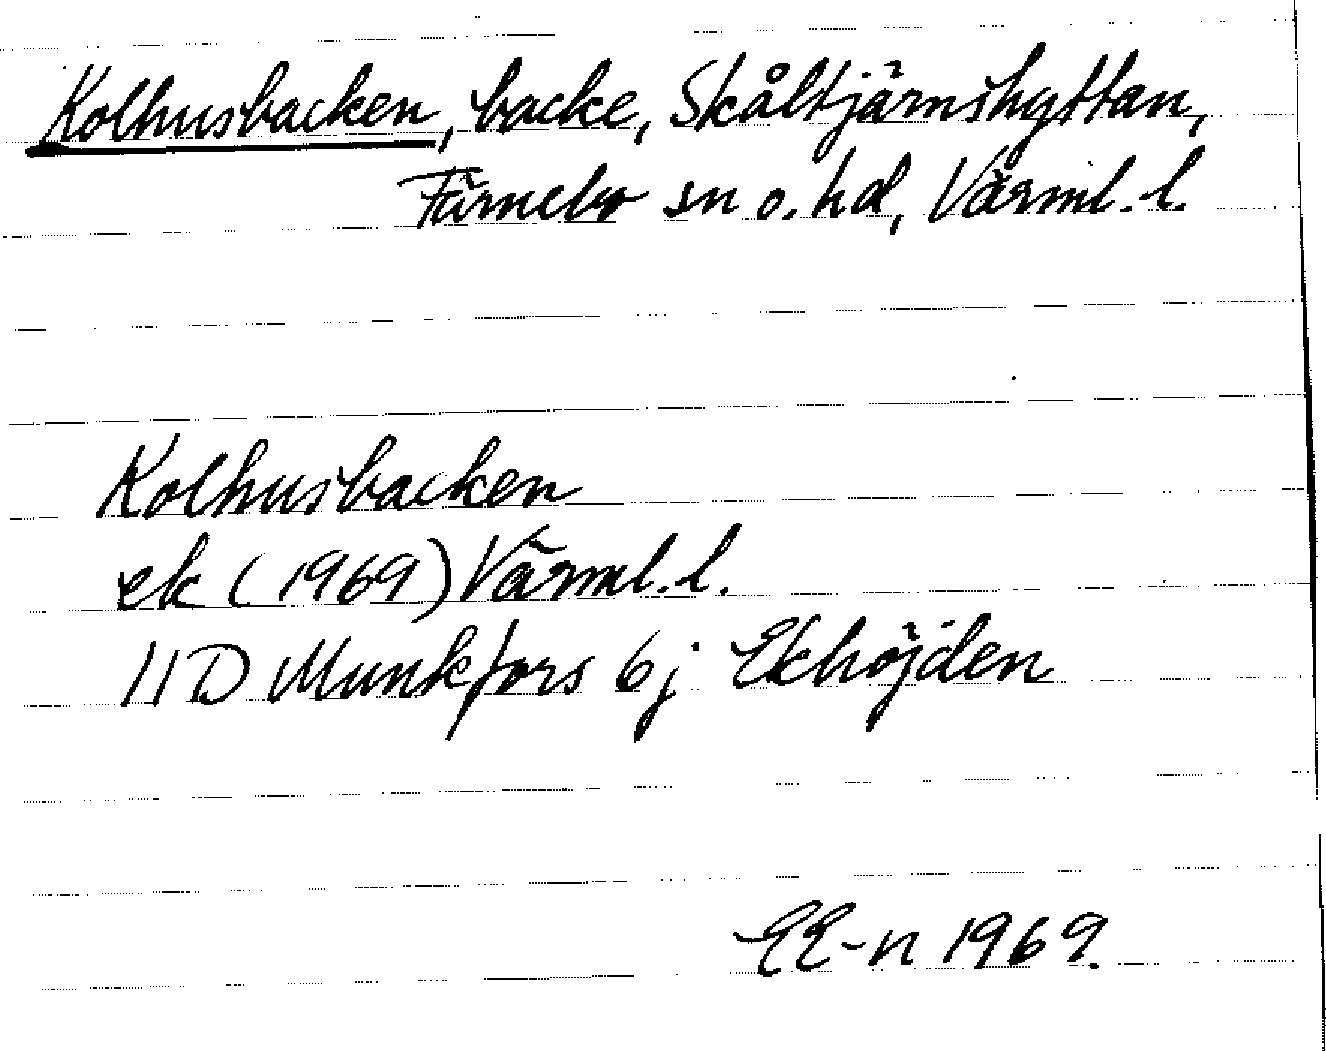 Kolhusbacken, backe, Skåltjärnshyttan,
Färnebo sn o. hd, Värml. l.
Kolhusbacken
ek (1969) Värml. l.
11D Munkfors 6j Ekhöjden
EE-n 1969.